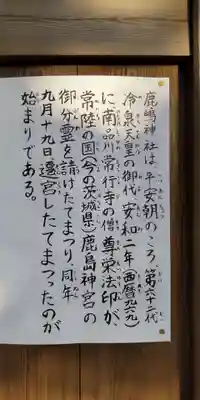 鹿嶋神社は、平安朝のころ、第六十二代
冷泉天皇の御代、安和二年(西暦九六九)
に南品川常行寺の僧尊栄法印が、
常陸の国(今の茨城県)鹿島神宮の
御分霊を請けたてまつり、同年
九月十九日遷宮したてまつったのが
始まりである。